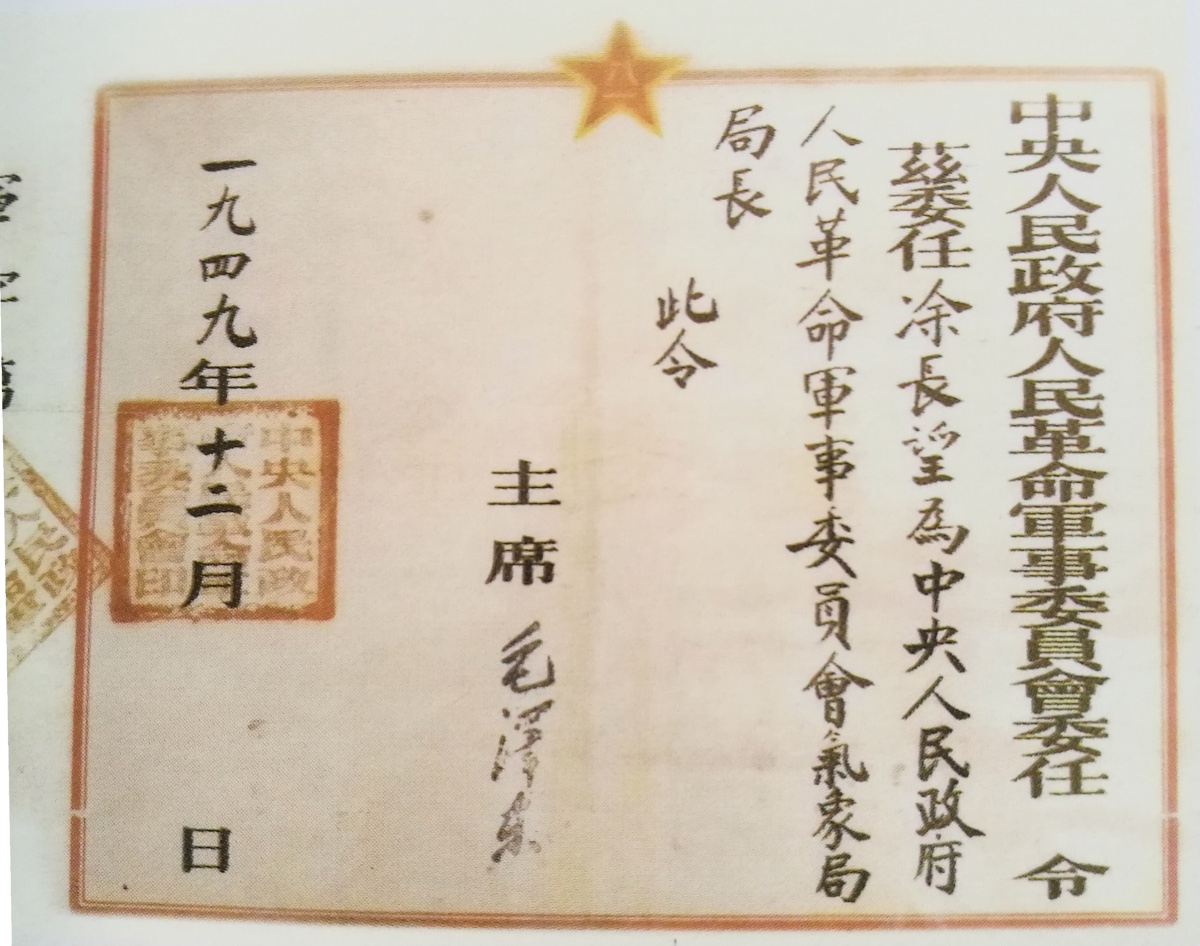 中央人民政府人民革命軍事委員會委任令
茲委任涂長望為中央人民政府
人民革命軍事委員會氣象局
局長
此令
主席 毛澤東
一九四九年十二月 日
八一
中央人民政